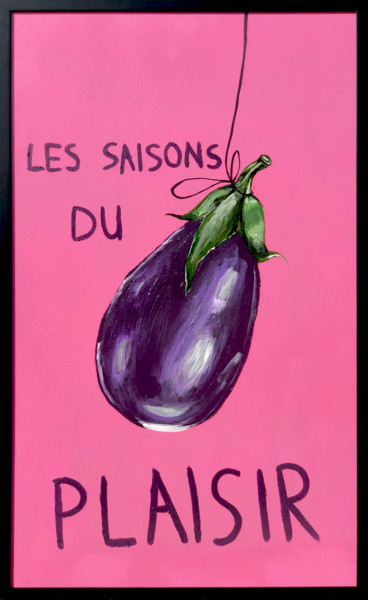 LES SAISONS
DU
PLAISIR